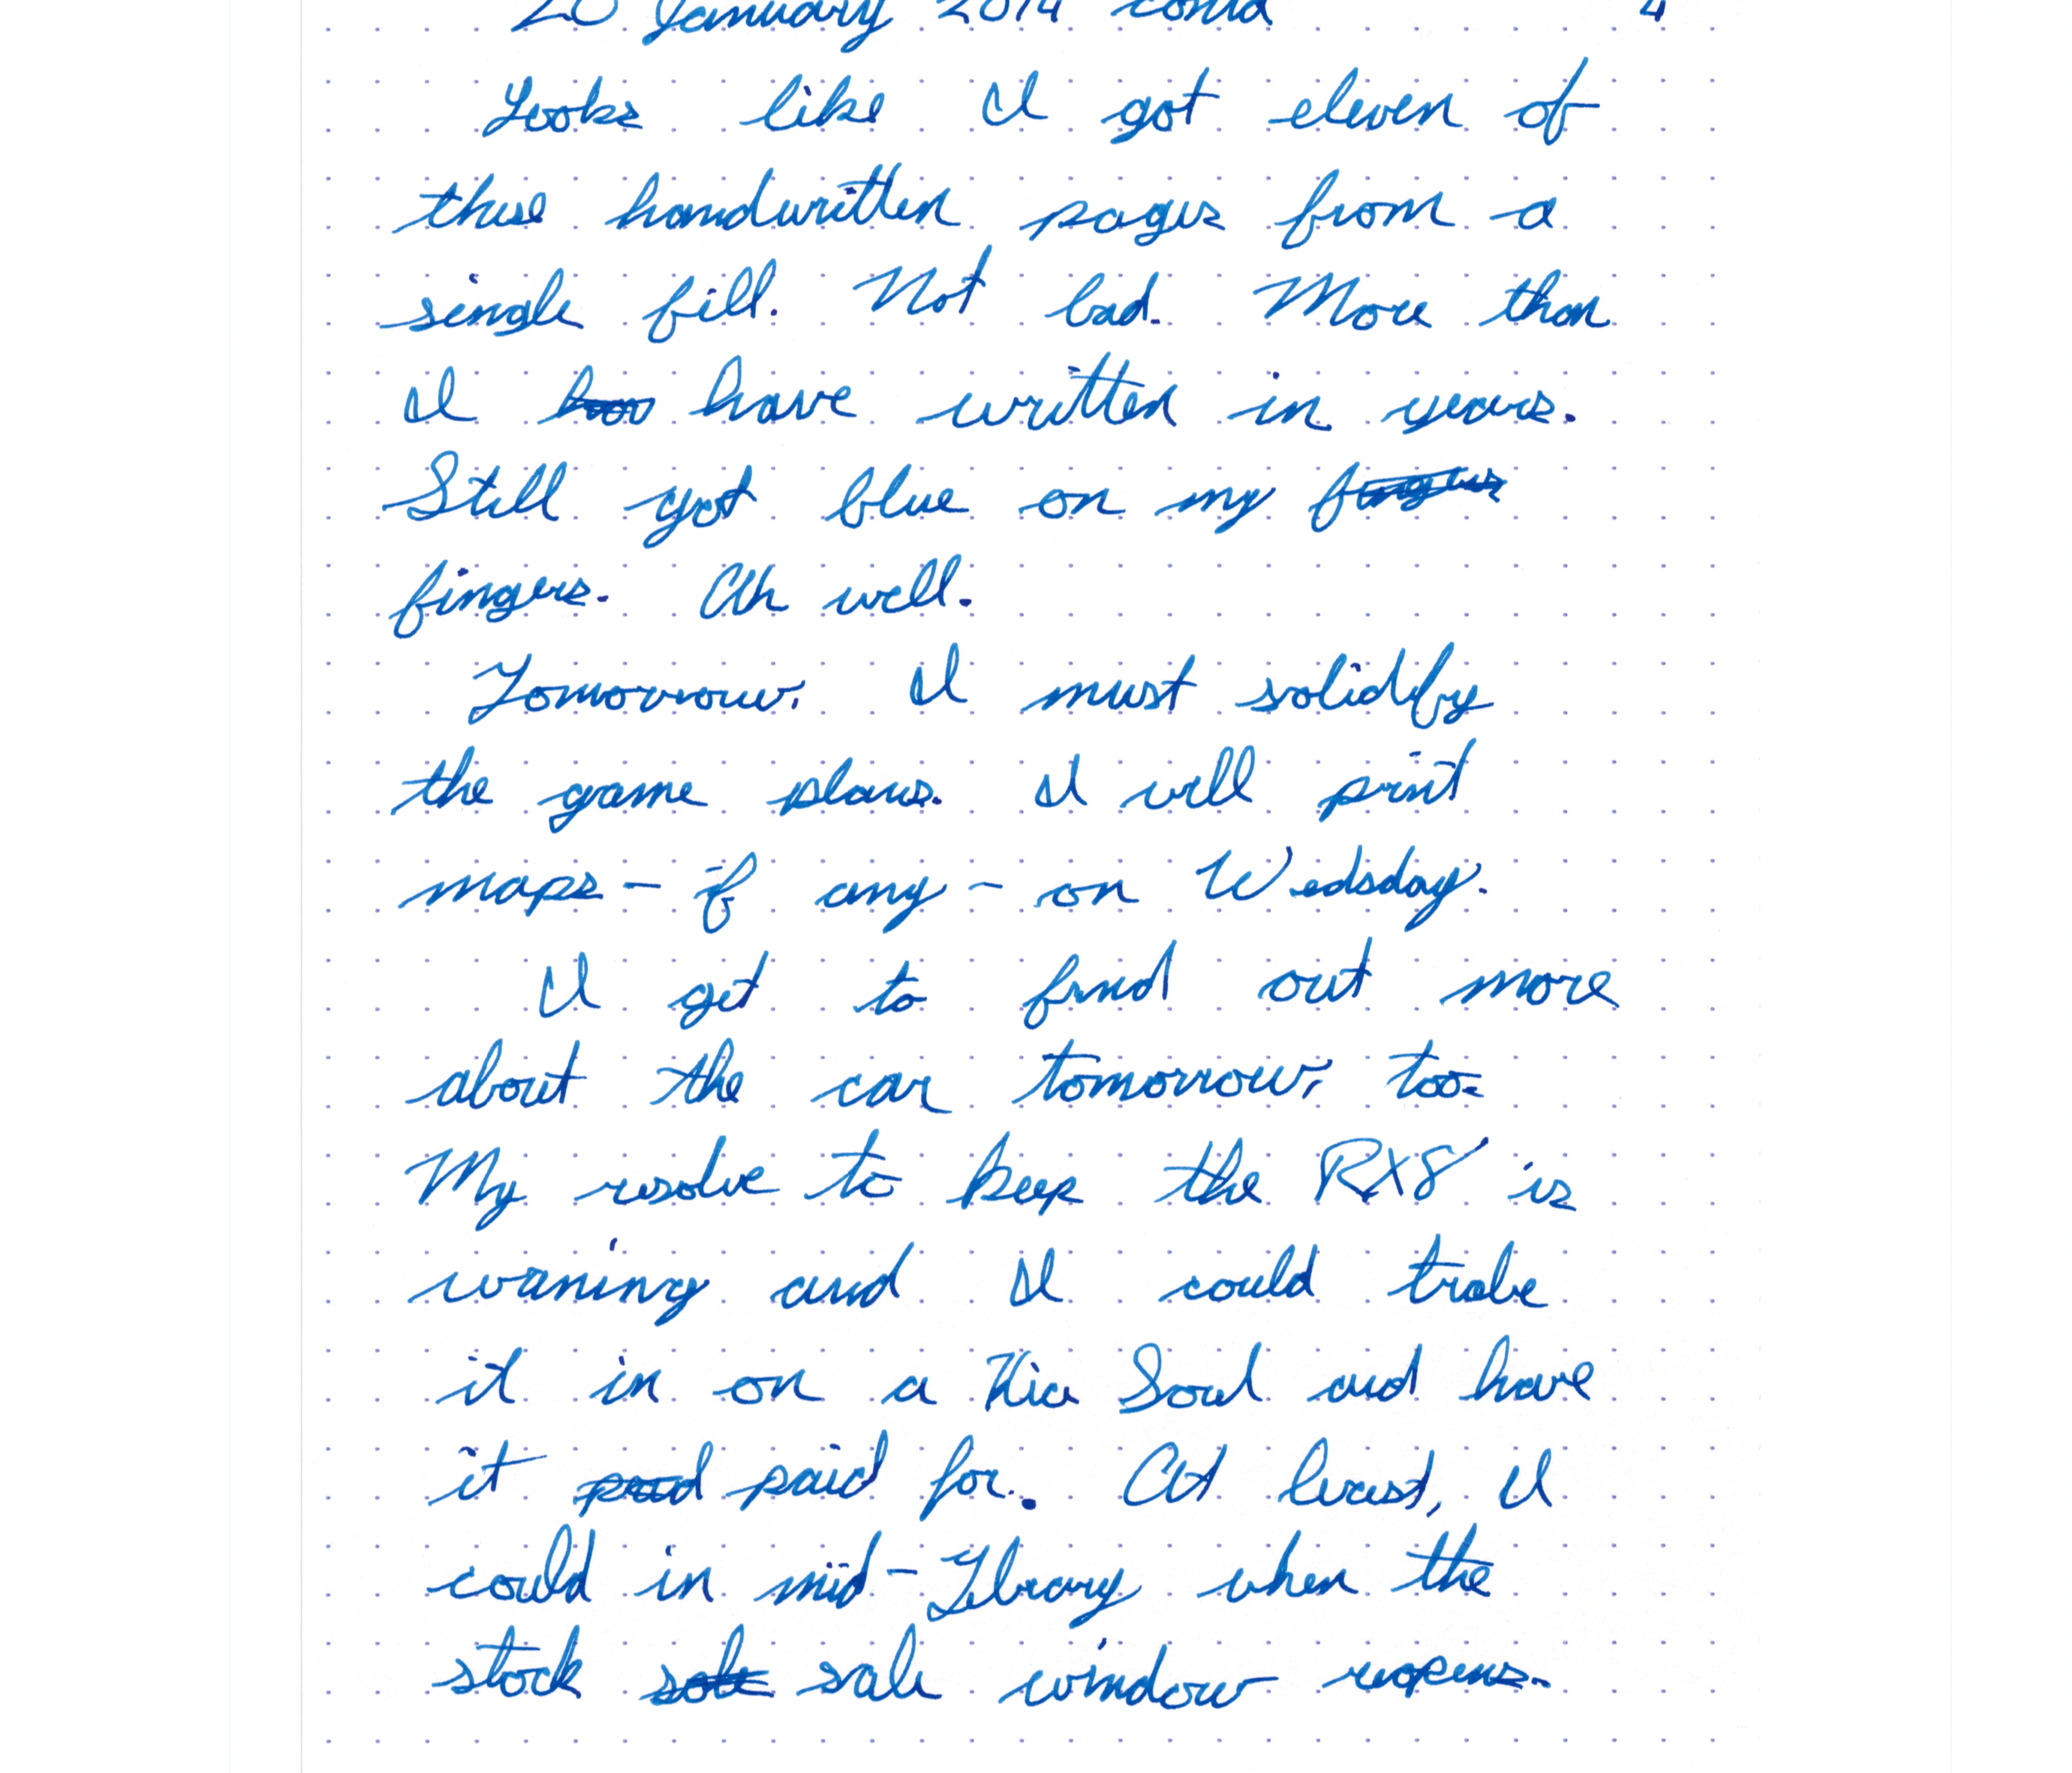 20 January 2014 contd 4
Looks like I got eleven of
these handwritten pages from a
single fill. Not bad. More than
I have written in years.
Still got blue on my fingers
fingers. Ah well.
Tomorrow, I must solidify
the game plans. I will print
maps - if any - on Wedsday.
I get to find out more
about the car tomorrow, too.
My resolve to keep the RX8 is
waning and I could trade
it in on a Kia Soul and have
it paid paid for. At least, I
could in mid-February when the
stock sale sale window reopens.